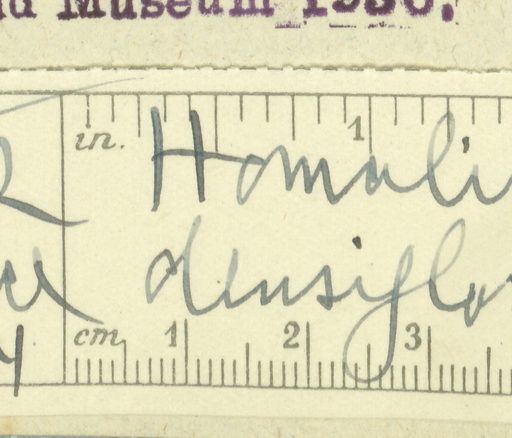 Museum 1930.
in. 1
Homali
densiflo
cm 1 2 3